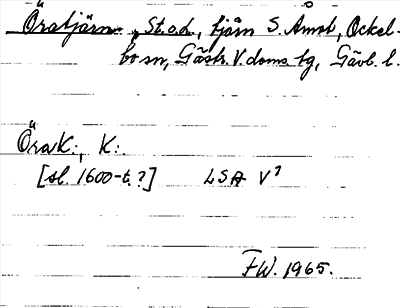 Örstjärn. St. o. d., tjärn S. Åmot, Ockel-
bo sn, Gästr. V. doms. tg, Gävl. l.
ÖraK:, K:.
[sl. 1600-t.?] LSA V?
F.W. 1965.